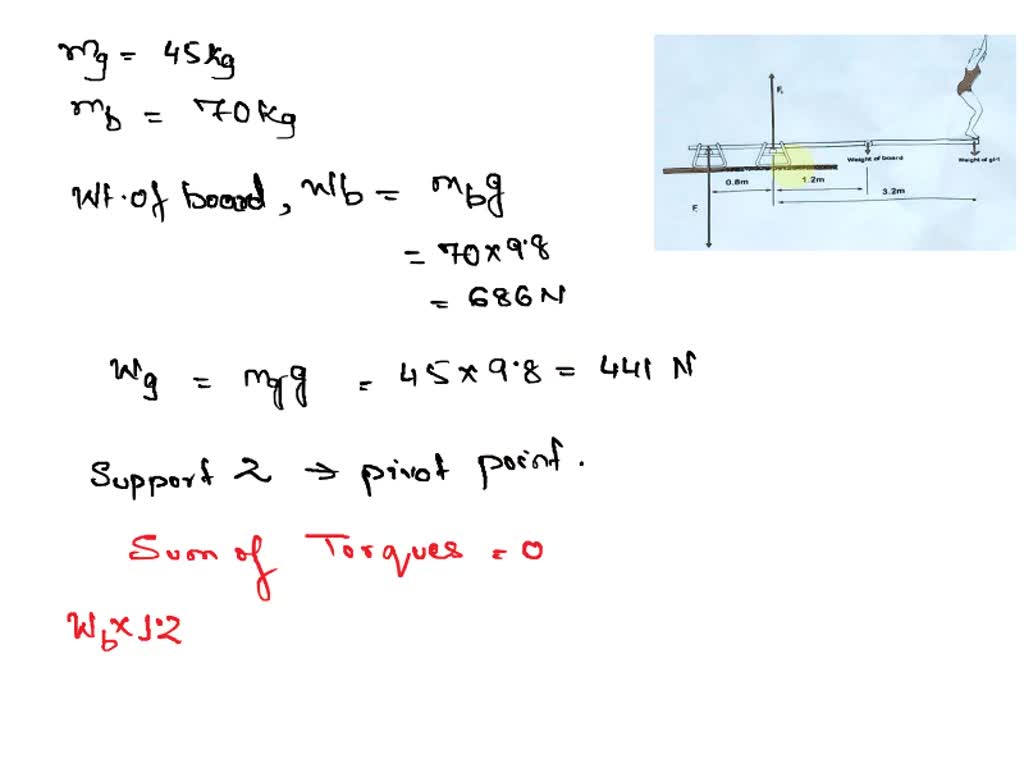 mg = 45 kg
mb = 70 kg
Wt. of board, Wb = mbg
= 70 × 9.8
= 686 N
Wg = mgg = 45 × 9.8 = 441 N
Support 2 ⇒ pivot point.
Sum of Torques = 0
Wb × 1.2
F
Weight of board
Weight of girl
0.8m
1.2m
3.2m
F